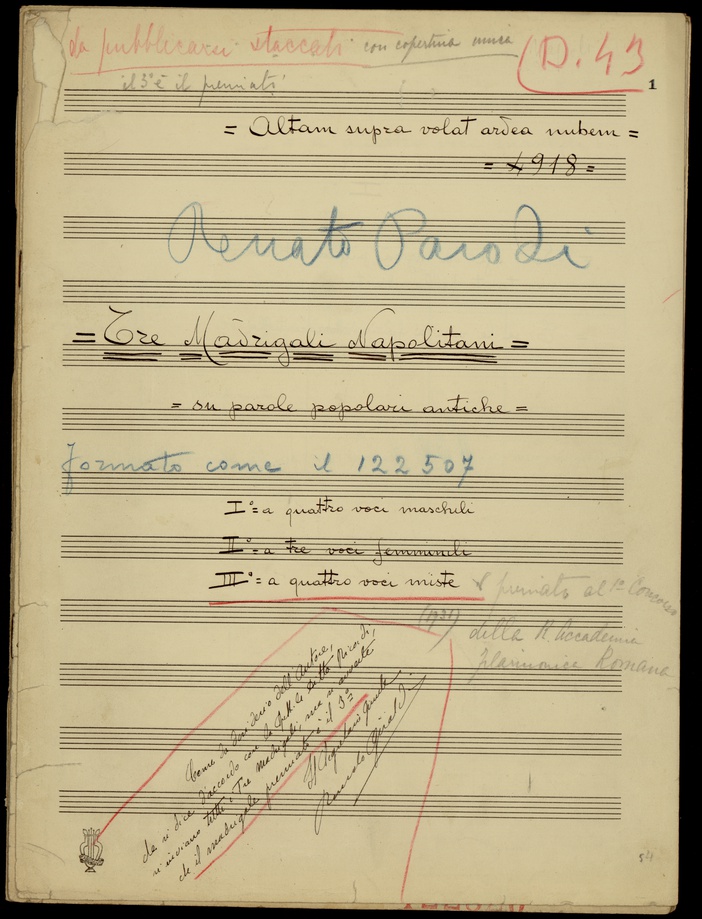 da pubblicarsi staccati con copertina unica
(D. 43
il 3° è il premiato
1
= Altam supra volat ardea nubem =
= 4918 =
Renato Parodi
= Tre Madrigali Napolitani =
= su parole popolari antiche =
formato come il 122507
I° = a quattro voci maschili
II° = a tre voci femminili
III° = a quattro voci miste
premiato al 1° Concorso
(1931)
della R. Accademia
filarmonica Romana
Come da desiderio dell'Autore,
che si dice d'accordo con la Spett.le Ditta Ricordi,
si inviano tutti i Tre Madrigali, ma si avverte
che il madrigale premiato è il 3°
Il Segretario
54